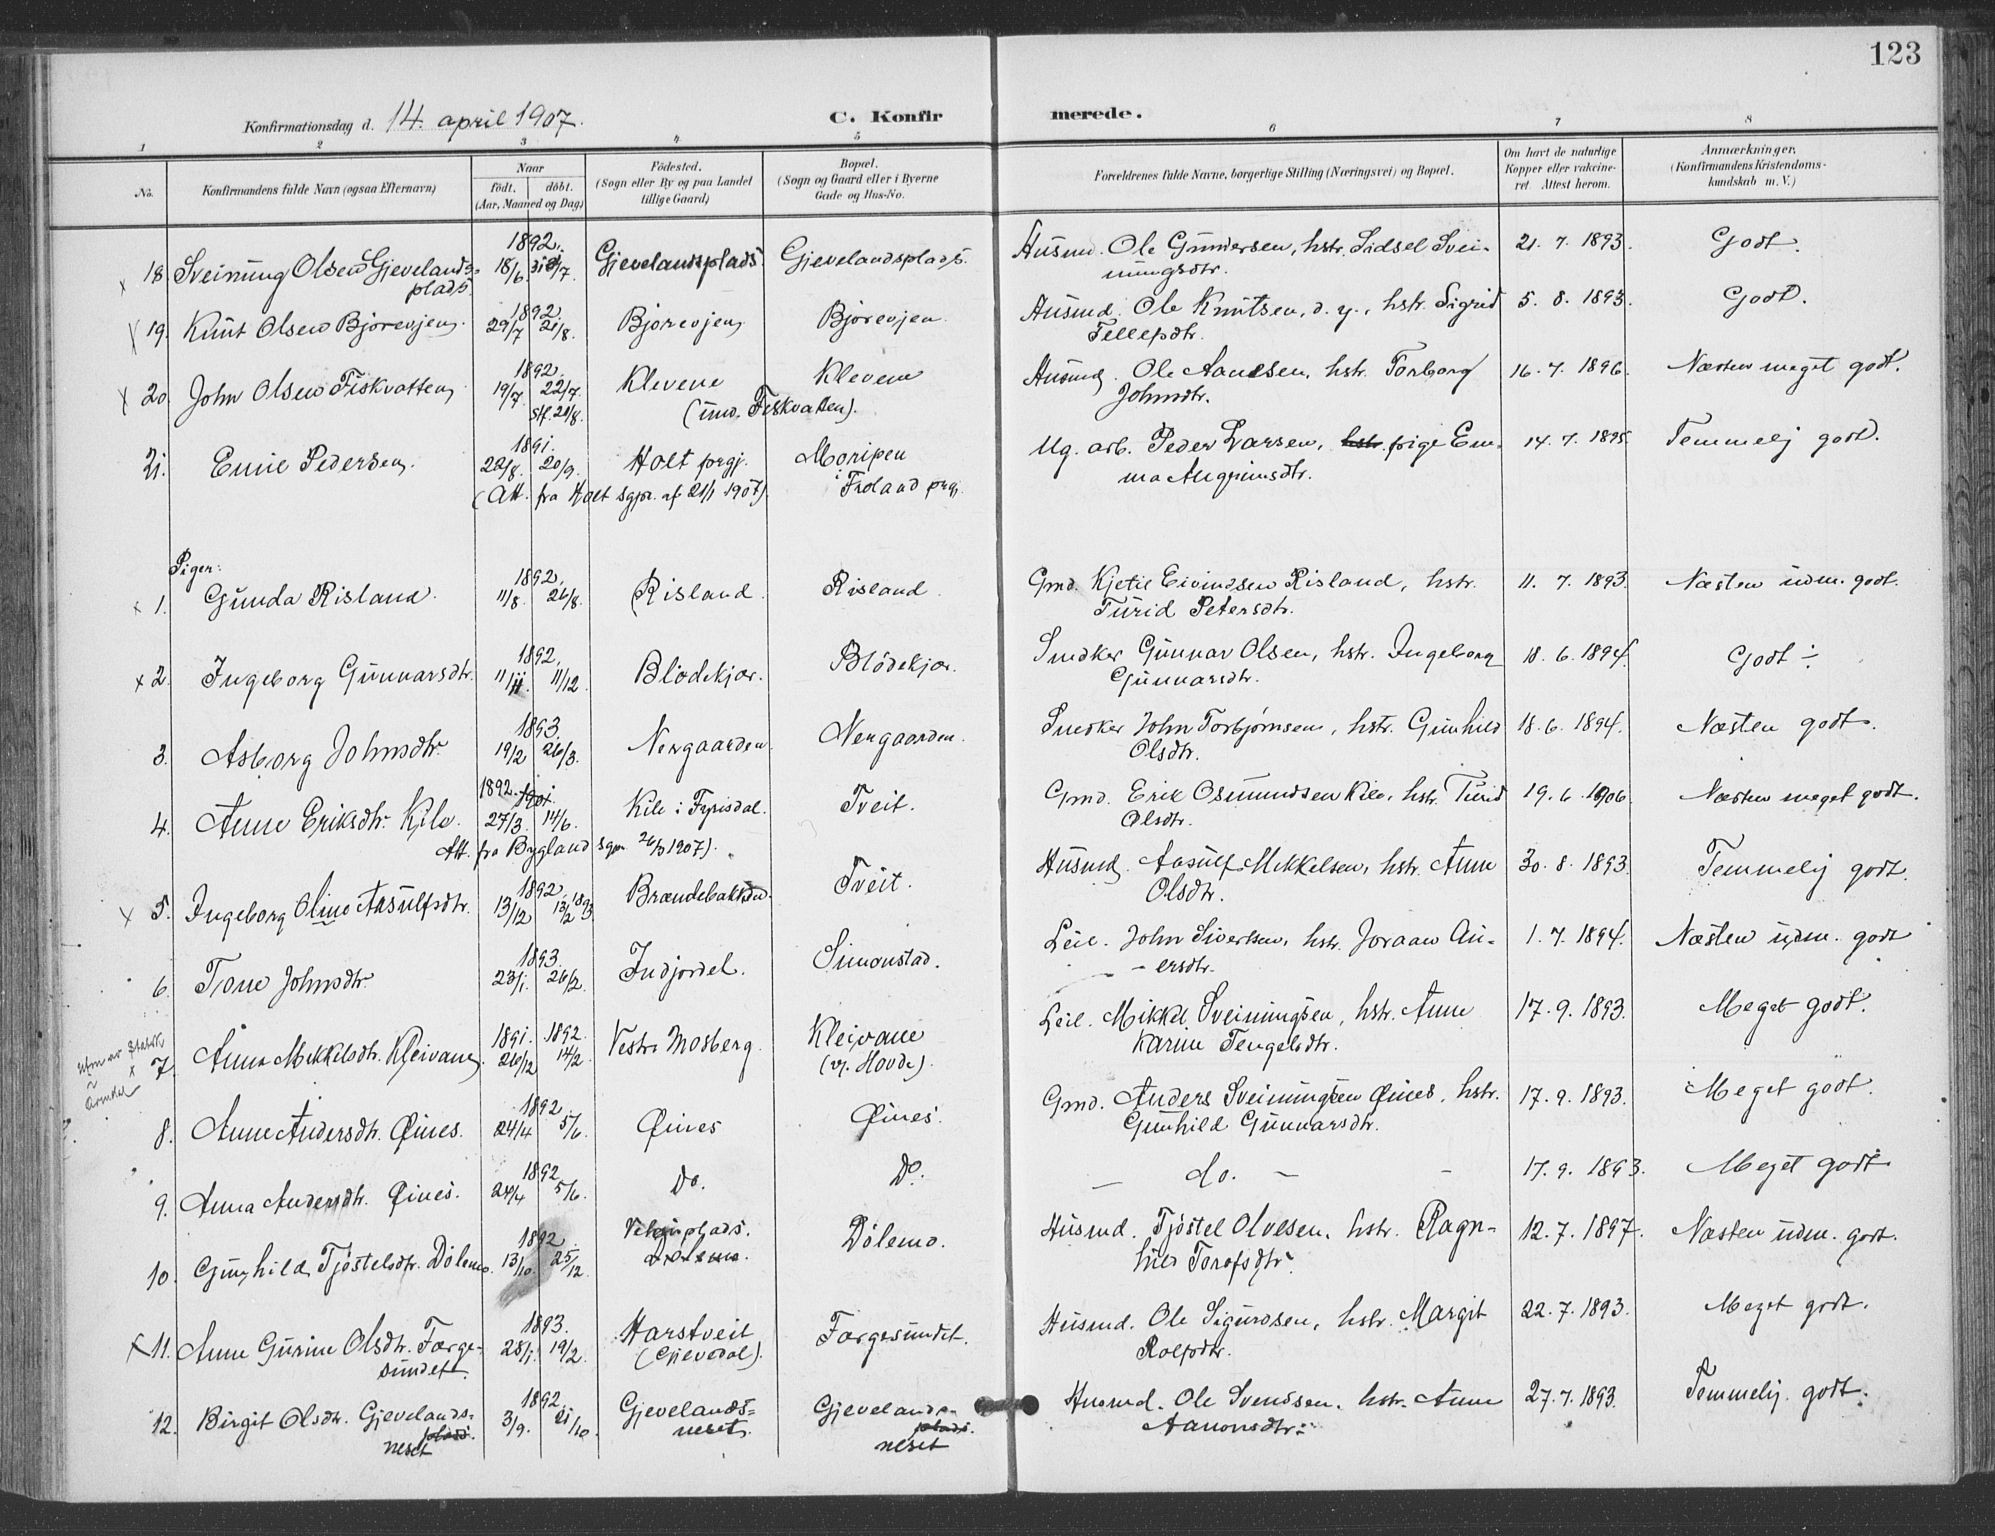 123
Konfirmationsdag d. 14. april 1907. C. Konfirmerede.
1 2 3 4 5 6 7 8
No. Konfirmandens fulde Navn (ogsaa Efternavn) Naar født. døbt. (Aar, Maaned og Dag) Fødested. (Sogn eller By og paa Landet tillige Gaard) Bopæl. (Sogn og Gaard eller i Byerne Gade og Hus-No. Forældrenes fulde Navne, borgerlige Stilling (Næringsvei) og Bopæl. Om havt de naturlige Kopper eller vakcineret Attest herom. Anmærkninger. (Konfirmandens Kristendomskundskab m. V.)
x 18 Sveinung Olsen Gjevelands-plads. 1892. 18/6 31/7. Gjevelandsplads. Gjevelandsplads. Husmd. Ole Gundersen, hstr. Sidsel Sveinungsdtr. 21. 7. 1893. Godt.
x 19. Knut Olsen Bjorevjen. 1892. 29/7 21/8. Bjorevjen Bjorevjen. Husmd. Ole Knutsen, d. y., hstr. Sigrid Tellefsdtr. 5. 8. 1893. Godt.
x 20. John Olsen Fiskvatten 1892. 19/7 22/7. st. 21/8. Klevene Klevene (und. Fiskvatten). Husmd. Ole Aanesen, hstr. Torborg Johnsdtr. 16. 7. 1896. Næsten meget godt.
21. Emil Pedersen. 1891. 22/8. 20/9. Holt prgj. Moripen i Froland prgj. Ug. arb. Peder Larsen, hstr. pige Emma Augrimsdtr. 14. 7. 1895. Temmelig godt.
(Att. fra Holt sgpr. af 21/1 1907).
Piger:
x 1. Gunda Risland. 1892. 11/8. 21/8. Risland. Risland. Gmd. Kjetil Eivindsen Risland, hstr. Turid Petersdtr. 11. 7. 1893. Næsten udm. godt.
x 2. Ingeborg Gunnarsdtr. 1892. 11/11. 11/12. Blodekjær. Blödekjær. Snedker Gunnar Olsen, hstr. Ingeborg Gunnarsdtr. 18. 6. 1894. Godt ÷
3. Asborg Johnsdtr. 1893. 19/2 26/3. Nergaarden. Nergaarden. Snedker John Torbjørnsen, hstr. Gunhild Olsdtr. 18. 6. 1894. Næsten godt.
4. Anne Eriksdtr. Kile. 1892. 27/3. 14/6. Kile i Fyrisdal. Tveit. Gmd. Erik Osmundsen Kile, hstr. Turid Olsdtr. 19. 6. 1906. Næsten meget godt.
Att. fra Bygland sgpr. 26/3 1907).
x 5. Ingeborg Oline Aasulfsdtr. 1892. 13/12 12/2 1893. Brændebakken. Tveit. Husmd. Aasulf Mikkelsen, hstr. Anne Olsdtr. 30. 8. 1893. Temmelig godt.
6. Tone Johnsdtr. 1893. 23/1. 26/2. Indjordet. Simonstad. Leil. John Sivertsen, hstr. Joraan Andersdtr. 1. 7. 1894. Næsten udm. godt
x 7. Anna Mikkelsdtr. Kleivane 1891. 26/12 1892. 14/2. Vestre Mosberg. Kleivane (v. Hovde). Leil. Mikkel Sveinungsen, hstr. Anne Karine Tengelsdtr. 17. 9. 1893. Meget godt.
8. Anne Andersdtr. Øines. 1892. 24/4 5/6. Øines Øines. Gmd. Anders Sveinungsen Øines, hstr. Gunhild Gunnarsdtr. 17. 9. 1893. Meget godt.
9. Anna Andersdtr. Øines. 1892 24/4 5/6. Do. Do. — do. — — 17. 9. 1893. Meget godt
10. Gunhild Tjöstelsdtr. Dölemo. 1892. 13/10. 25/12. Dölemo. Dölemo. Husmd. Tjöstel Olvesen, hstr. Ragnhild Torofsdtr. 12. 7. 1897. Næsten udm. godt.
x 11. Anne Gurine Olsdtr. Farge-sundet. 1893. 28/1. 19/2. Harstveit (Gjevedal). Fargesundet. Husmd. Ole Sigurdsen, hstr. Margit Rolfsdtr. 22. 7. 1893. Meget godt.
12. Birgit Olsdtr. Gjevelands-plads. neset 1892 3/9. 21/10. Gjevelands-neset. Gjevelands-plads. neset Husmd. Ole Svendsen, hstr. Anne Aanonsdtr. 27. 7. 1893. Temmelig godt.